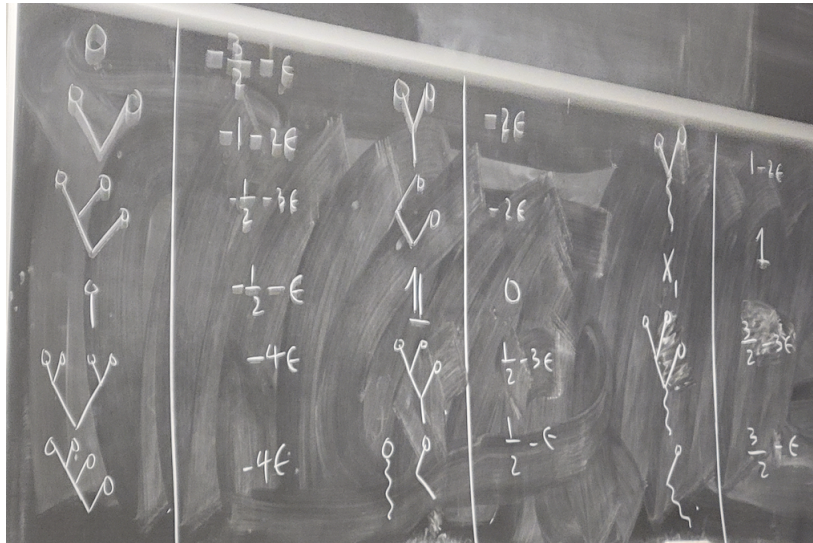 -3/2 - ε
-1-2ε
-1/2-3ε
-1/2-ε
-4ε
-4ε
-2ε
-2ε
𝟙
0
1/2-3ε
1/2-ε
1-2ε
X₁
1
3/2-3ε
3/2-ε